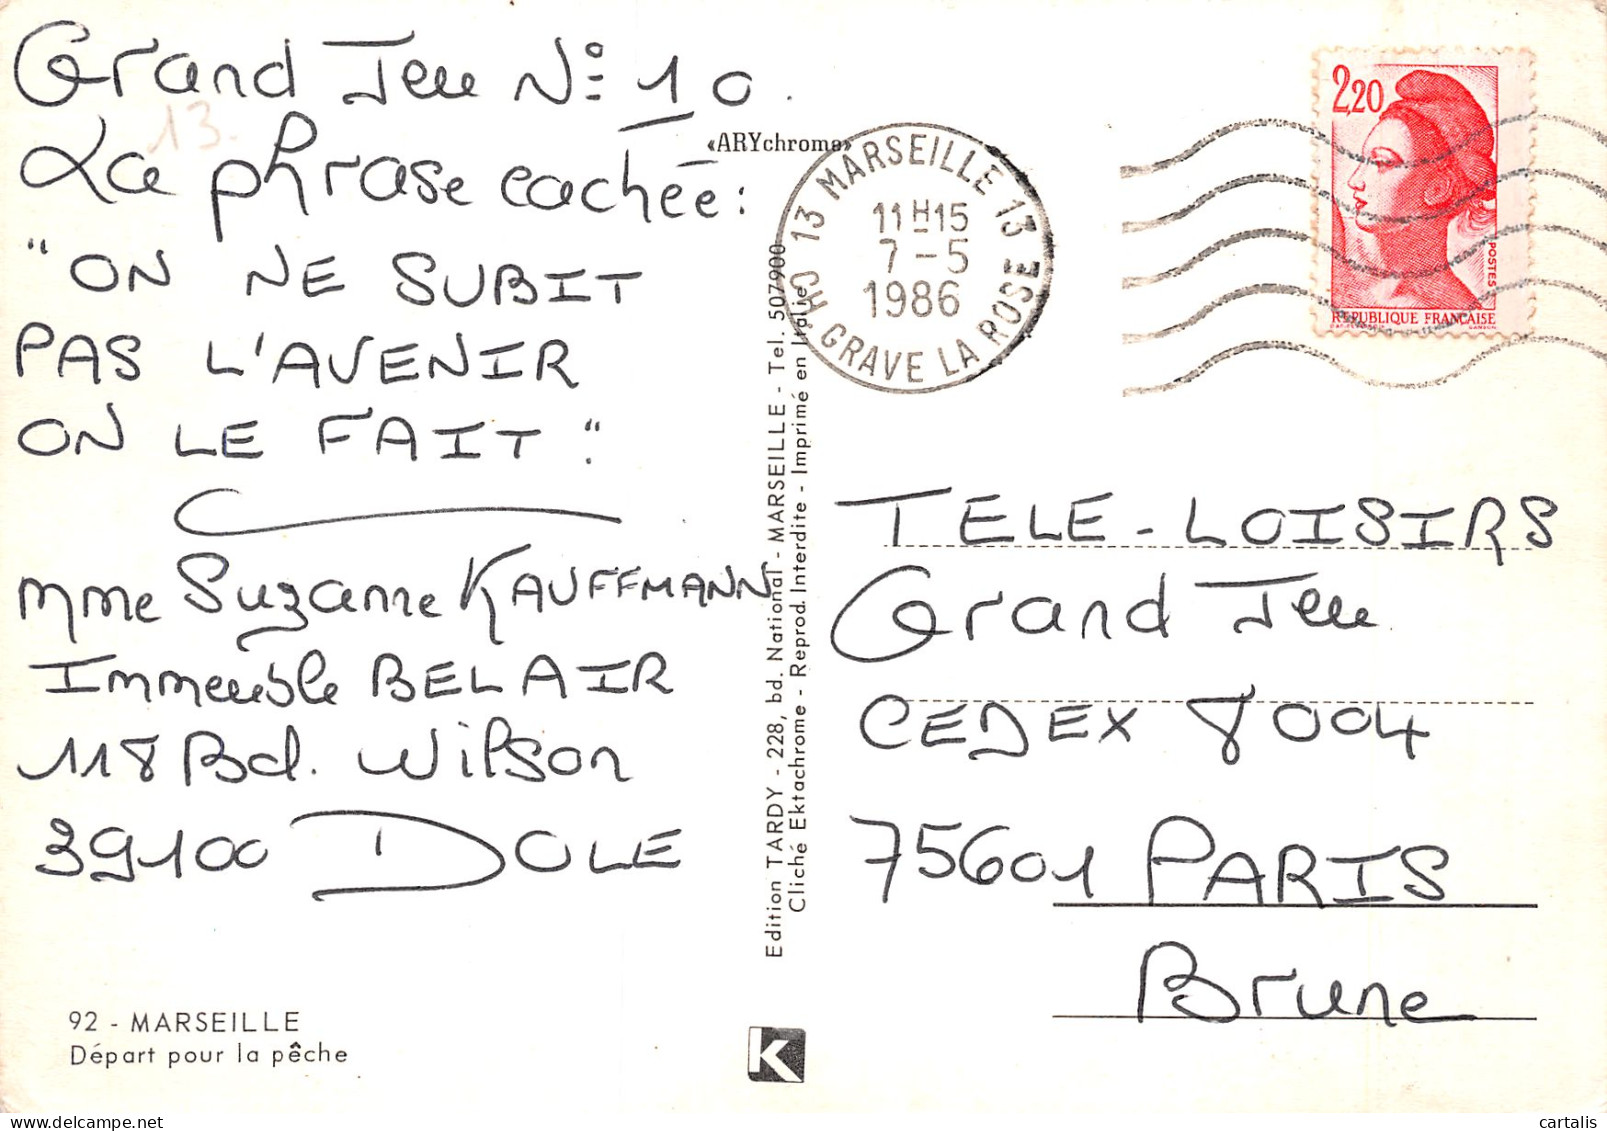 Grand Jeu N° 10.
13.
La phrase cachée :
"ON NE SUBIT
PAS L'AVENIR
ON LE FAIT"
Mme Suzanne KAUFFMANN
Immeuble BEL AIR
118 Bd. Wilson
39100 DOLE
92 - MARSEILLE
Départ pour la pêche
«ARYchrome»
Edition TARDY - 228, bd. National - MARSEILLE - Tel. 507900
Cliché Ektachrome - Reprod. Interdite - Imprimé en Italie
K
13 MARSEILLE 13
11H15
7-5
1986
CH. GRAVE LA ROSE
2,20
POSTES
REPUBLIQUE FRANÇAISE
GANDON
TELE-LOISIRS
Grand Jeu
CEDEX 8004
75601 PARIS
Brune
cartalis
www.delcampe.net